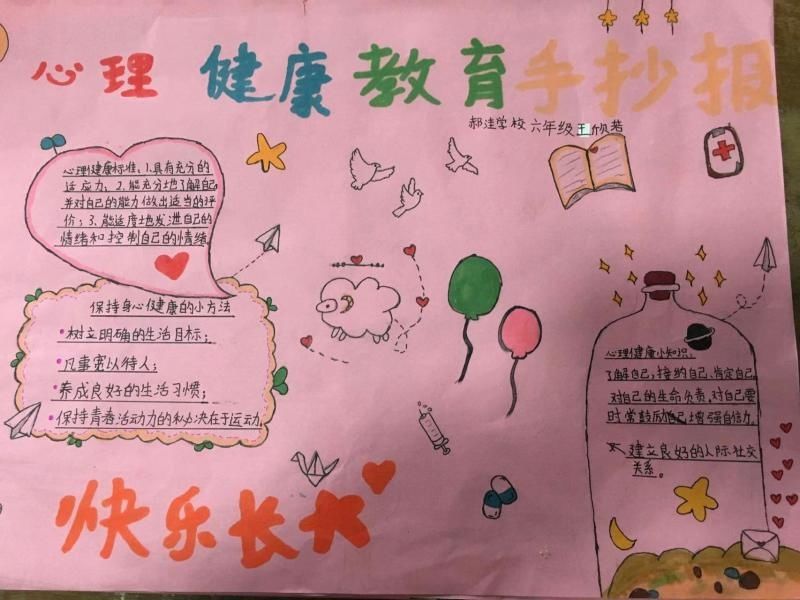 心理健康教育手抄报
郝洼学校六年级王欣若
心理健康标准、1.具有充分的
适应力；2、能充分地了解自己,
并对自己的能力做出适当的评
价；3、能适度地发泄自己的
情绪和控制自己的情绪
保持身心健康的小方法
•树立明确的生活目标；
•凡事宽以待人；
•养成良好的生活习惯；
•保持青春活动力的秘决在于运动.
心理健康小知识：
了解自己，接纳自己，肯定自己
对自己的生命负责，对自己要
时常鼓励自己增强自信力
建立良好的人际社交
关系。
快乐长大